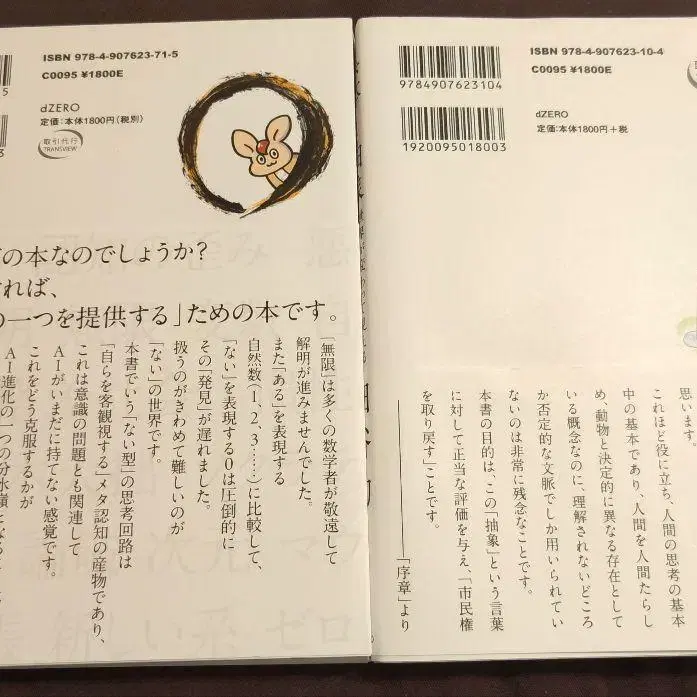 ISBN 978-4-907623-71-5
C0095 ¥1800E
dZERO
定価:本体1800円(税別)
取引代行
TRANSVIEW
の本なのでしょうか?
れば、
の一つを提供する」ための本です。
「無限」は多くの数学者が敬遠して
解明が進みませんでした。
また「ある」を表現する
自然数(1、2、3……)に比較して、
「ない」を表現する0は圧倒的に
その「発見」が遅れました。
扱うのがきわめて難しいのが
「ない」の世界です。
本書でいう「ない型」の思考回路は
「自らを客観視する」メタ認知の産物であり、
これは意識の問題とも関連して
AIがいまだに持てない感覚です。
これをどう克服するかが
AI進化の一つの分水嶺となる
ISBN 978-4-907623-10-4
C0095 ¥1800E
9784907623104
dZERO
定価:本体1800円+税
1920095018003
思います。
これほど役に立ち、人間の思考の基本
中の基本であり、人間を人間たらし
め、動物と決定的に異なる存在として
いる概念なのに、理解されないどころ
か否定的な文脈でしか用いられてい
ないのは非常に残念なことです。
本書の目的は、この「抽象」という言葉
に対して正当な評価を与え、「市民権
を取り戻す」ことです。
——「序章」より